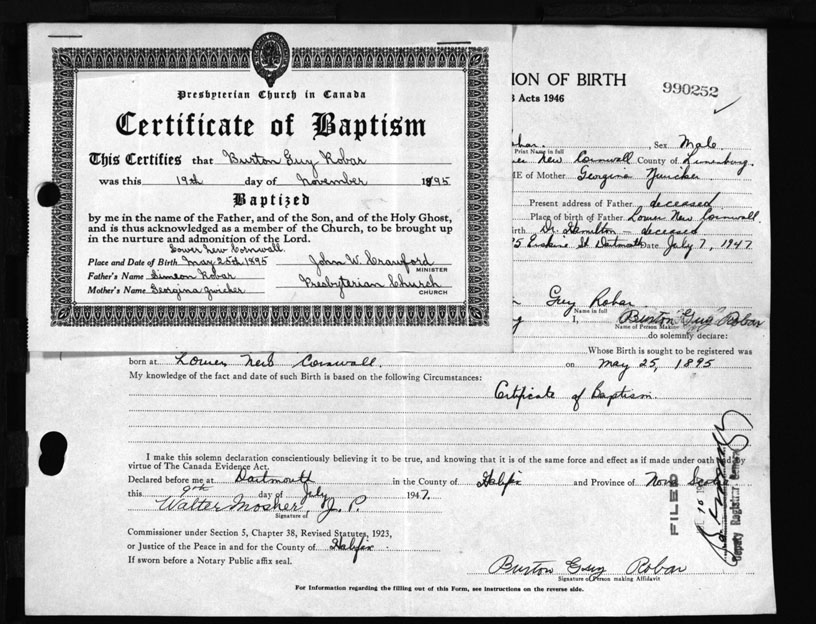 Presbyterian Church in Canada
Certificate of Baptism
This Certifies that Burton Guy Robar
was this 19th day of November 1895
Baptized
by me in the name of the Father, and of the Son, and of the Holy Ghost,
and is thus acknowledged as a member of the Church, to be brought up
in the nurture and admonition of the Lord.
Lower New Cornwall
Place and Date of Birth May 25th 1895 John W. Crawford
MINISTER
Father's Name Simeon Robar
Mother's Name Georgina Zwicker Presbyterian Church
CHURCH
ION OF BIRTH
990252
Acts 1946
Sex Male
Print Name in full
New Cornwall County of Lunenburg.
ME of Mother Georgina
Present address of Father deceased
Place of birth of Father Lower New Cornwall.
irth Dr. Hamilton – deceased
5 Erskine St. Dartmouth Date July 7, 1947
Guy Robar
Name in full
I, Burton Guy Robar
Name of Person Making
do solemnly declare:
Whose Birth is sought to be registered was
born at Lower New Cornwall. on May 25, 1895
My knowledge of the fact and date of such Birth is based on the following Circumstances:
Certificate of Baptism.
I make this solemn declaration conscientiously believing it to be true, and knowing that it is of the same force and effect as if made under oath and by
virtue of The Canada Evidence Act.
Declared before me at Dartmouth in the County of Halifax and Province of Nova Scotia
this 9th day of July 1947.
Walter Mosher, J. P.
Signature of
FILED
Deputy Registrar General
Commissioner under Section 5, Chapter 38, Revised Statutes, 1923,
or Justice of the Peace in and for the County of Halifax.
If sworn before a Notary Public affix seal.
Burton Guy Robar
Signature of Person making Affidavit
For Information regarding the filling out of this Form, see instructions on the reverse side.